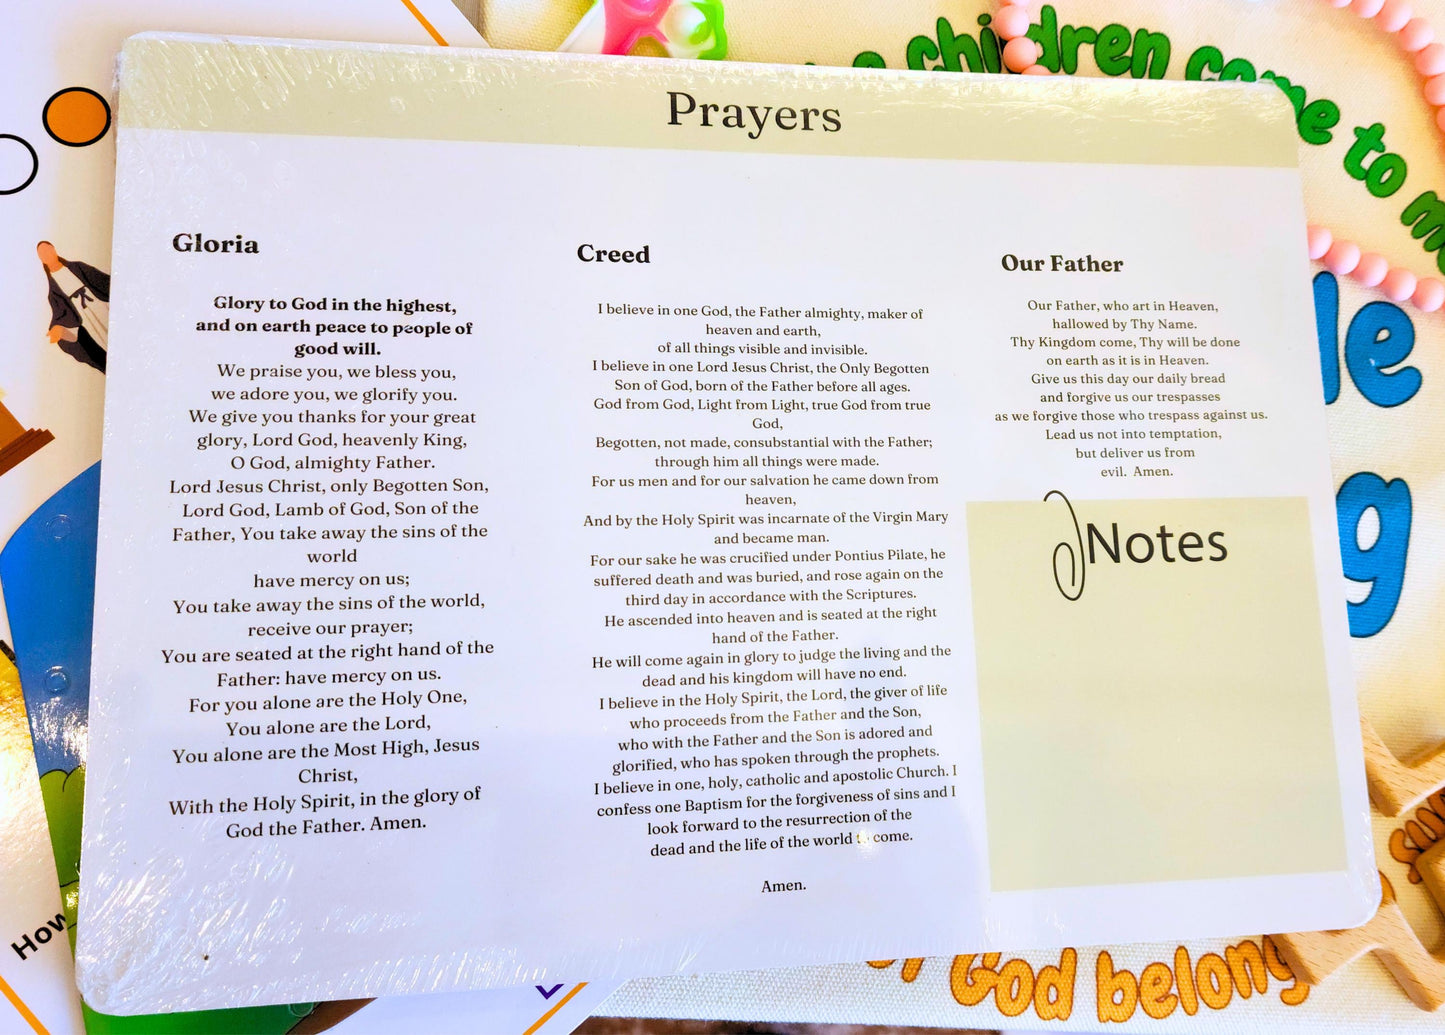 children come to
Prayers
Gloria
Glory to God in the highest,
and on earth peace to people of
good will.
We praise you, we bless you,
we adore you, we glorify you.
We give you thanks for your great
glory, Lord God, heavenly King,
O God, almighty Father.
Lord Jesus Christ, only Begotten Son,
Lord God, Lamb of God, Son of the
Father, You take away the sins of the
world
have mercy on us;
You take away the sins of the world,
receive our prayer;
You are seated at the right hand of the
Father: have mercy on us.
For you alone are the Holy One,
You alone are the Lord,
You alone are the Most High, Jesus
Christ,
With the Holy Spirit, in the glory of
God the Father. Amen.
Creed
I believe in one God, the Father almighty, maker of
heaven and earth,
of all things visible and invisible.
I believe in one Lord Jesus Christ, the Only Begotten
Son of God, born of the Father before all ages.
God from God, Light from Light, true God from true
God,
Begotten, not made, consubstantial with the Father;
through him all things were made.
For us men and for our salvation he came down from
heaven,
And by the Holy Spirit was incarnate of the Virgin Mary
and became man.
For our sake he was crucified under Pontius Pilate, he
suffered death and was buried, and rose again on the
third day in accordance with the Scriptures.
He ascended into heaven and is seated at the right
hand of the Father.
He will come again in glory to judge the living and the
dead and his kingdom will have no end.
I believe in the Holy Spirit, the Lord, the giver of life
who proceeds from the Father and the Son,
who with the Father and the Son is adored and
glorified, who has spoken through the prophets.
I believe in one, holy, catholic and apostolic Church. I
confess one Baptism for the forgiveness of sins and I
look forward to the resurrection of the
dead and the life of the world to come.
Amen.
Our Father
Our Father, who art in Heaven,
hallowed by Thy Name.
Thy Kingdom come, Thy will be done
on earth as it is in Heaven.
Give us this day our daily bread
and forgive us our trespasses
as we forgive those who trespass against us.
Lead us not into temptation,
but deliver us from
evil. Amen.
Notes
How
of God belong